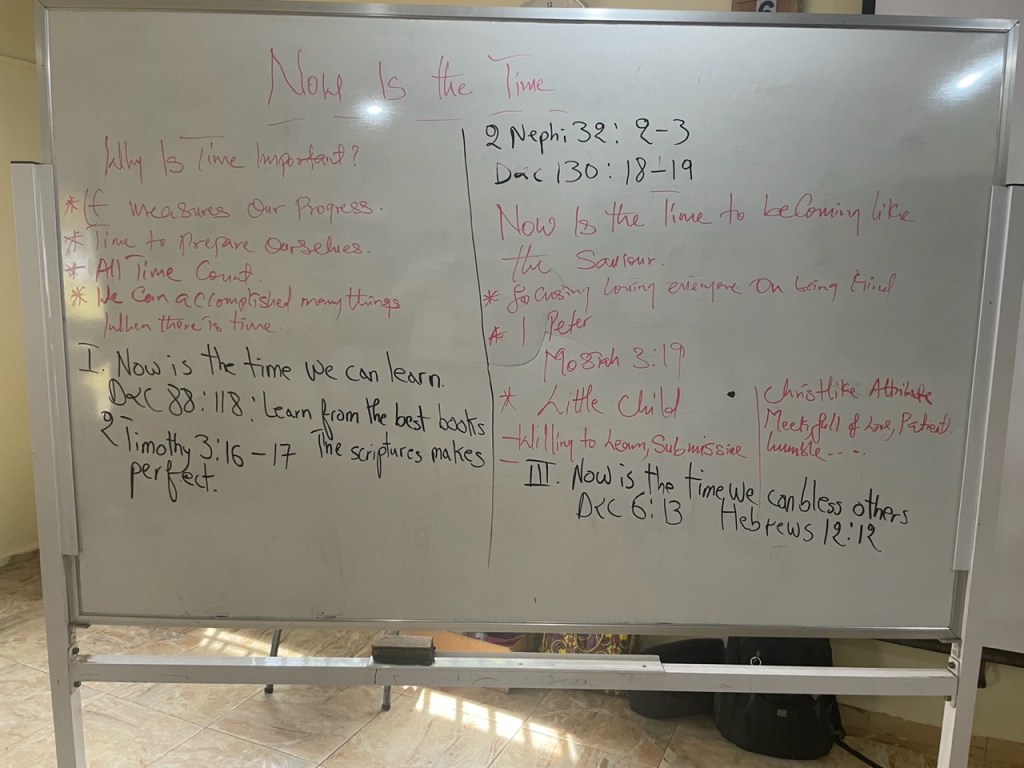 Now Is the Time
Why Is Time Important?
*It measures Our Progress.
*Time to Prepare Ourselves.
* All Time Count.
* We Can accomplished many things
When there is time.
I. Now is the time we can learn.
D&C 88:118: Learn from the best books
2 Timothy 3:16-17 The scriptures makes
perfect.
2 Nephi 32: 2-3
D&C 130: 18-19
Now Is the Time to beComing like
the Saviour.
* focusing loving everyone On being Kind
* 1 Peter
Mosiah 3:19
* Little Child
- Willing to learn, Submissive
-
• Christlike Attribute
Meek, full of Love, Patient
humble - - - .
III. Now is the time we can bless others
D&C 6:13 Hebrews 12:12
6